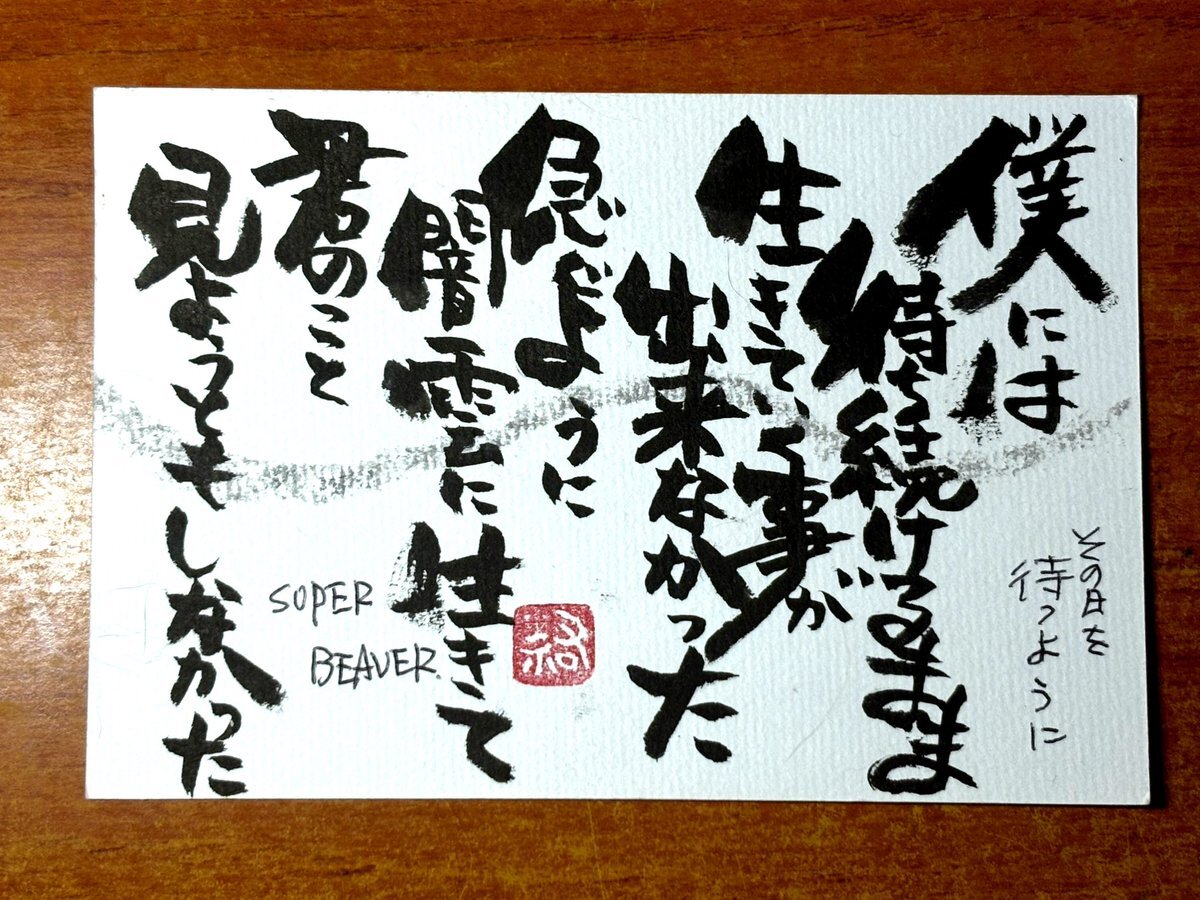 僕には
待ち続けるまま
生きていく事が
出来なかった
急ぐように
闇雲に生きて
君のこと
見ようともしなかった
その日を
待つように
SUPER
BEAVER.